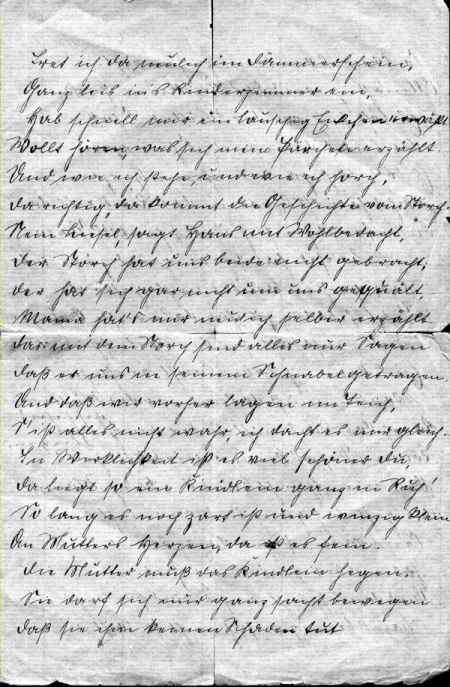 Tret ich da neulich im Dämmerschein,
Ganz leis ins Kinderzimmer ein,
Hab schnell mir ein lauschig Eckchen erwählt
Wollt hören, was sich mein Pärchen erzählt.
Und wie ich stehe, und wie ich horch,
da richtig, da kommt die Geschichte vom Storch.
Nein Liesel, sagt Hans mit Wohlbedacht,
der Storch hat uns beide nicht gebracht,
der hat sich gar nicht um uns gequält,
Mama hat's mir neulich selber erzählt
das mit dem Storch sind alles nur Sagen
daß er uns in seinem Schnabel getragen.
Und daß wir vorher lagen im Teich,
S' ist alles nicht wahr, ich dacht es mir gleich.
In Wirklichkeit ist es viel schöner du,
da liegt so ein Kindlein ganz in Ruh!
So lang es noch zart ist und winzig klein
An Mutters Herzen, da ist es fein.
Die Mutter muß das Kindlein hegen.
Sie darf sich nur ganz sacht bewegen
daß sie ihm keinen Schaden tut